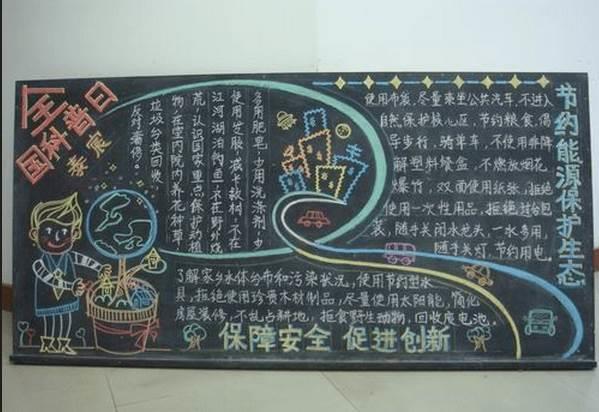 全国科普日
多用肥皂,少用洗涤剂,少
使用,减卡救树,不在
江河湖泊钓鱼,不在野外烧
荒,认识国家重点保护动植
物,在室内院内养花种草,
垃圾分类回收,
反对奢侈。
使用布袋,尽量乘坐公共汽车,不进入
自然保护核心区,节约粮食,倡
导步行,骑单车,不使用非降
解塑料餐盒,不燃放烟花
爆竹,双面使用纸张,拒绝
使用一次性用品,拒绝过分包
装,随手关闭水龙头,一水多用,
随手关灯,节约用电。
节约能源保护生态
了解家乡水体分布和污染状况,使用节约型水
具,拒绝使用珍贵木材制品,尽量使用太阳能,简化
房屋装修,不乱占耕地,拒食野生动物,回收废电池。
保障安全 促进创新